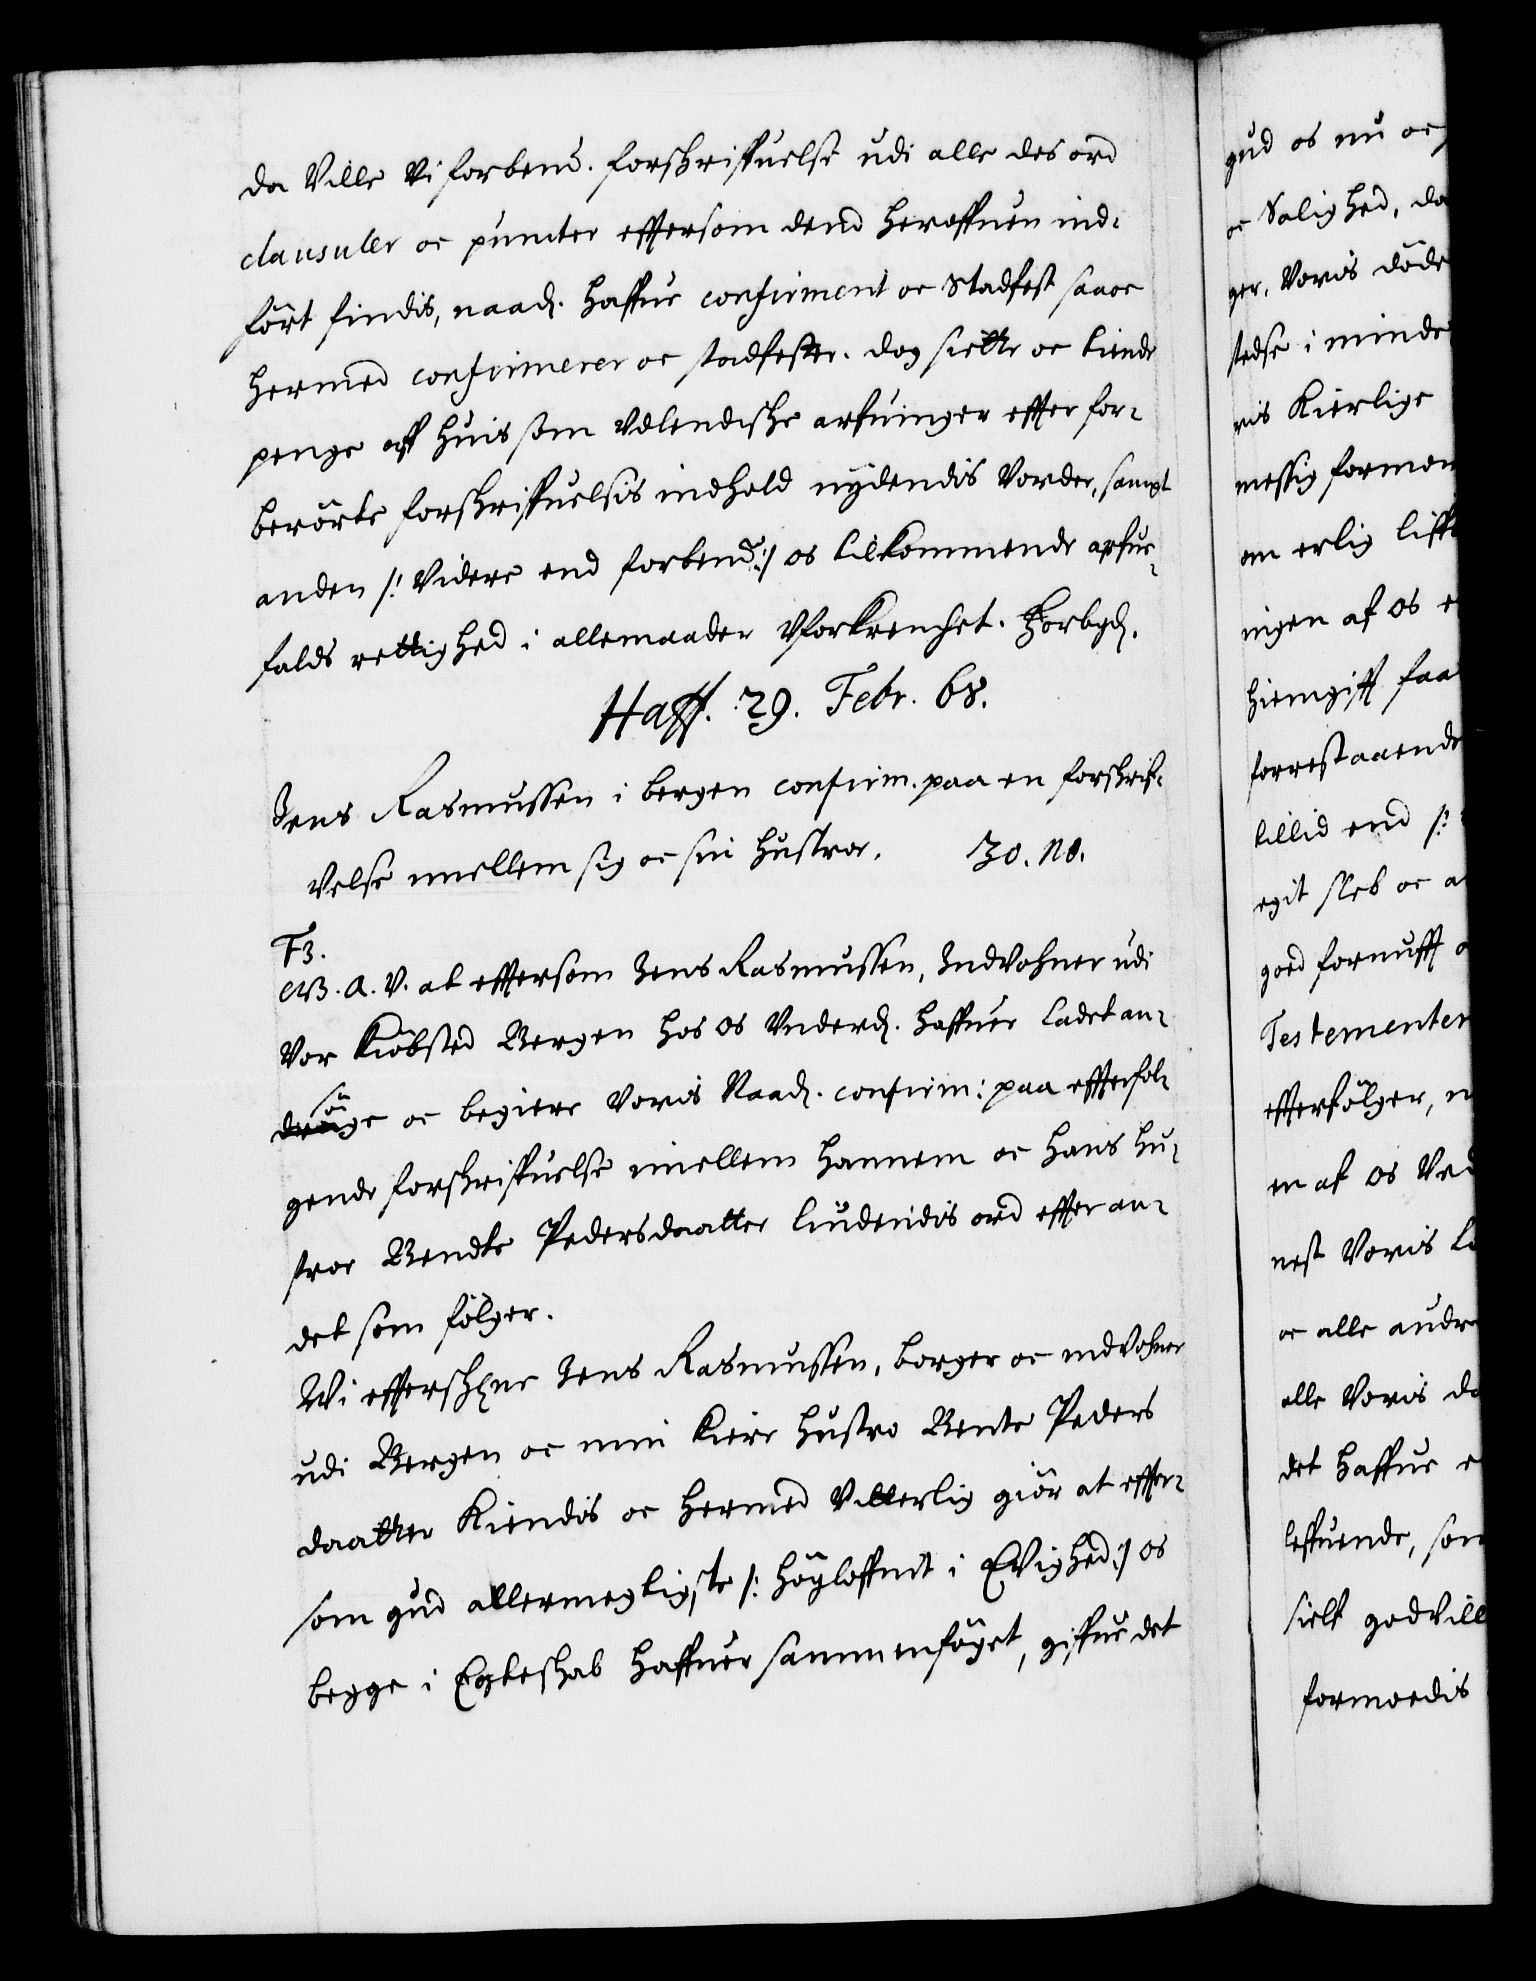 da Ville Vi forbend. forskriffuelse udi alle des ord
clausuler oc puncter effersom dend heroffuen ind-
fört findis, naadl. haffue confirmerit oc Stadfest saa oc
hermed confirmerer oc stadfester. dog siette oc tiende
penge aff huis som Vdlendiske arfuinger effter for-
berörte forskriffuelsis indhold nydendis Vorder, sampt
anden /: Videre end forbend :/ os tilkommende arfue-
falds rettighed i allemaader Vforkrencket. Forbydl.
Haff. 29. Febr. 68.
Jens Rasmussen i bergen confirm. paa en forskrif-
velse imellem sig oc sin hustroe. 30. no.
F3.
G. A. V. at effersom Jens Rasmussen, Indvohner udi
Vor Kiöbsted Bergen hos os Vnderdl. haffuer ladet an-
söge oc begiere Voris Naadl. confirm: paa effterföl-
gende forskriffuelse imellem hannem oc hans hu-
stroe Bendte Pedersdaatter liudendis ord effter an-
det som fölger.
Wi efferskrne Jens Rasmussen, borger oc indvohner
udi Bergen oc min kiere hustro Bente Peders
daatter Kiendis oc hermed Vitterlig giör at effter-
som gud allermegtigste /: högloffuit i Evighed :/ os
begge i Egteskab haffuer sammenföyet, giffue det
gud os nu oc
oc Salighed, da
ger, Voris döde
stedse i minde
ris Kierlige
messig forman
om erlig liff
ingen af os
hiemgiff faa
forrestaaende
tillid end /:
egit sleb oc a
goed fornufft
Testementer
effterfölger,
en af os Ved
nest Voris
oc alle andre
alle Voris
det haffue
leffuende, som
sielf godvill
formoedis